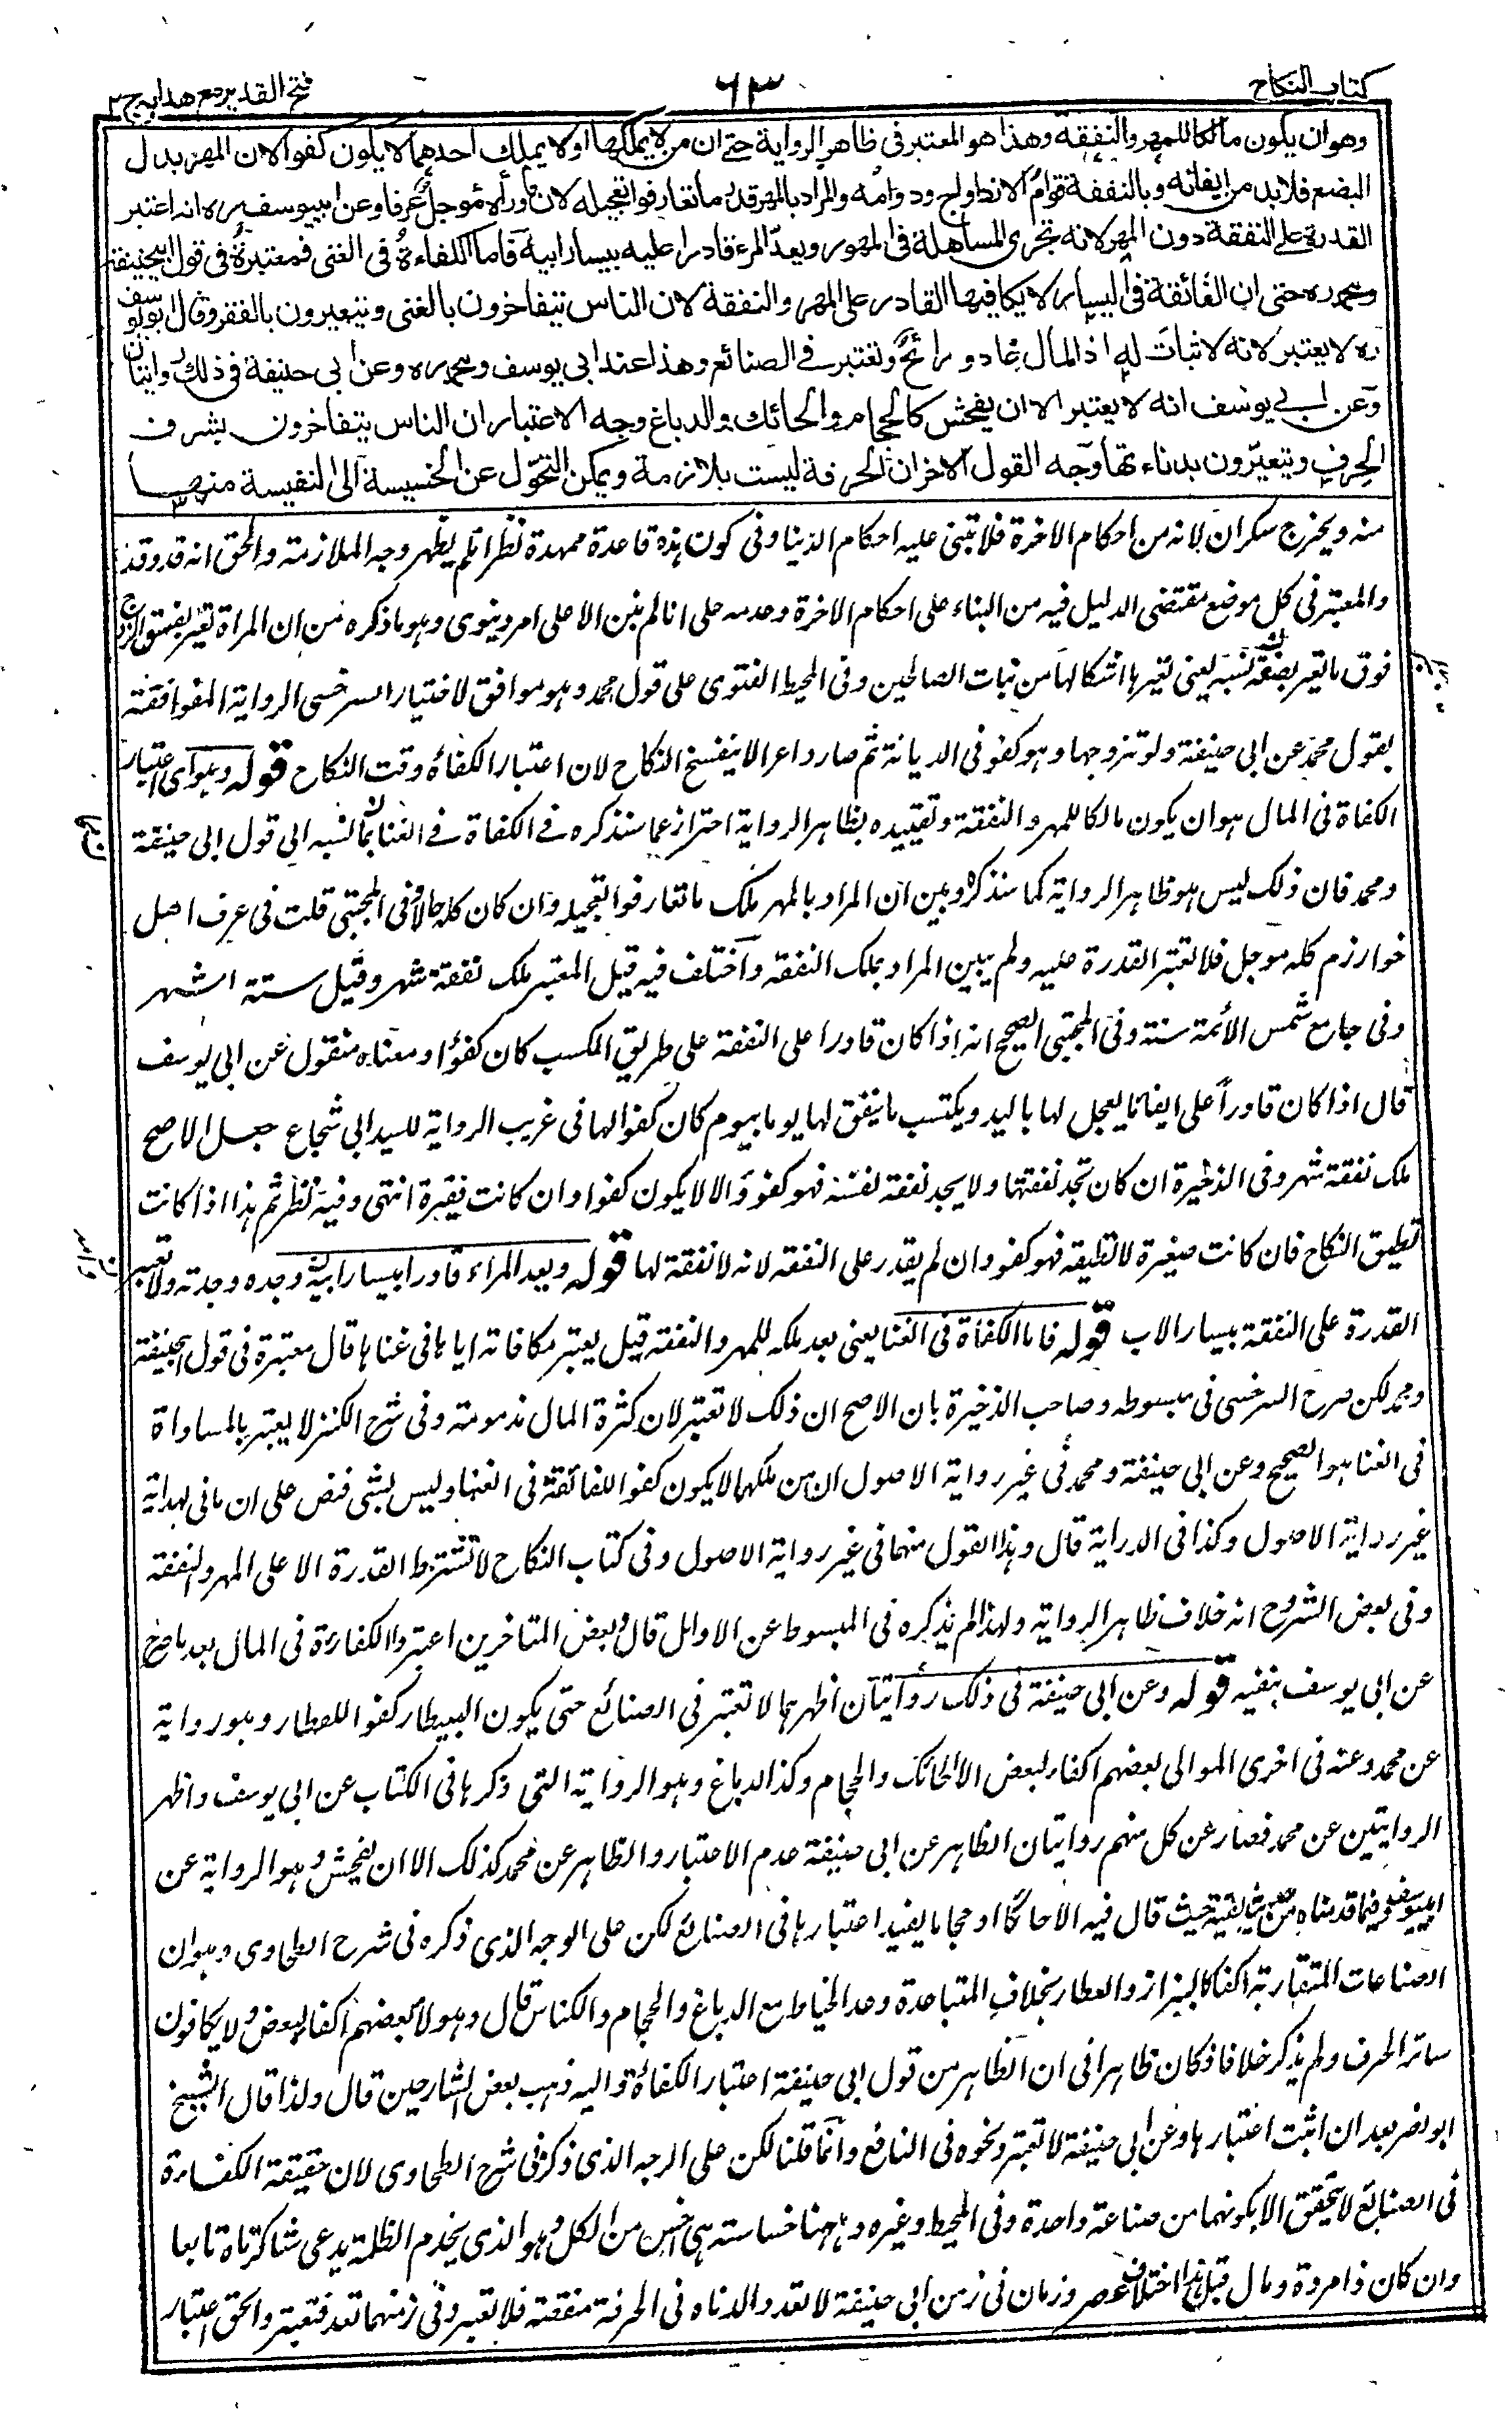 كتاب النكاح
٦٣
فتح القدير مع هدايه ج ٢
وهو ان يكون مالكا للمهر والنفقة وهذا هو المعتبر فى ظاهر الرواية حتى ان من لا يملكهما او لا يملك احدهما لا يكون كفوا لان المهر بدل
البضع فلا بد من ايفائه وبالنفقة قوام الازدواج ودوامه والمراد بالمهر قدر ما تعارفوا تعجيله لان ما وراءه مؤجل عرفا وعن ابى يوسف ره انه اعتبر
القدرة على النفقة دون المهر لانه تجرى المساهلة فى المهور ويعد المرء قادرا عليه بيسار ابيه فاما الكفاءة فى الغنى فمعتبرة فى قول ابى حنيفة
ومحمد ره حتى ان الفائقة فى اليسار لا يكافيها القادر على المهر والنفقة لان الناس يتفاخرون بالغنى ويتعيرون بالفقر وقال ابو يوسف
ره لا يعتبر لانه لا ثبات له اذ المال غاد ورائح وتعتبر فى الصنائع وهذا عند ابى يوسف ومحمد ره وعن ابى حنيفة فى ذلك روايتان
وعن ابى يوسف انه لا يعتبر الا ان يفحش كالحجام والحائك والدباغ وجه الاعتبار ان الناس يتفاخرون بشرف
الحرف ويتعيرون بدناءتها وجه القول الاخر ان الحرفة ليست بلازمة ويمكن التحول عن الخسيسة الى النفيسة منها
منه ويخرج سكران لانه من احكام الاخرة فلا تبنى عليه احكام الدنيا وفى كون هذه قاعدة ممهدة نظر اذ لم يظهر وجه الملازمة والحق انه قد وقد
والمعتبر فى كل موضع مقتضى الدليل فيه من البناء على احكام الاخرة وعدمه على انا لم نبن الا على امر دنيوى وهو ما ذكره من ان المراة تعير بفسق الزوج
فوق ما تعير بضعة نسبه يعنى تعيرها اشكالها من بنات الصالحين وفى المحيط الفتوى على قول محمد وهو موافق لاختيار السرخسى الرواية الموافقة
بقول محمد عن ابى حنيفة ولو تزوجها وهو كفو فى الديانة ثم صار داعرا لا ينفسخ النكاح لان اعتبار الكفاءة وقت النكاح قوله وهو اى اعتبار
الكفاة فى المال هو ان يكون مالكا للمهر والنفقة وتقييده بظاهر الرواية احتراز عما سنذكره فى الكفاة فى الغنا مما نسبه الى قول ابى حنيفة
ومحمد فان ذلك ليس هو ظاهر الرواية كما سنذكره وبين ان المراد بالمهر ملك ما تعارفوا تعجيله وان كان كله حالا وفى المجتبى قلت فى عرف اهل
خوارزم كله مؤجل فلا تعتبر القدرة عليه ولم يبين المراد بملك النفقة واختلف فيه قيل المعتبر ملك نفقة شهر وقيل ستة اشهر
وفى جامع شمس الائمة سنة وفى المجتبى الصحيح انه اذا كان قادرا على النفقة على طريق الكسب كان كفؤا ومعناه منقول عن ابى يوسف
قال اذا كان قادرا على ايفاء ما يعجل لها باليد ويكتسب ما ينفق لها يوما بيوم كان كفوا لها فى غريب الرواية للسيد ابى شجاع جعل الاصح
ملك نفقة شهر وفى الذخيرة ان كان تجد نفقتها ولا يجد نفقة نفسه فهو كفو والا لا يكون كفوا وان كانت فقيرة انتهى وفيه نظر ثم هذا اذا كانت
تطيق النكاح فان كانت صغيرة لا تطيقه فهو كفو وان لم يقدر على النفقة لانه لا نفقة لها قوله ويعد المراء قادرا بيسار ابيه وجده وجدته ولا تعتبر
القدرة على النفقة بيسار الاب قوله فاما الكفاة فى الغنا يعنى بعد ملكه للمهر والنفقة قيل يعتبر مكافاته اياها فى غناها قال معتبرة فى قول ابى حنيفة
ومحمد لكن صرح السرخسى فى مبسوطه وصاحب الذخيرة بان الاصح ان ذلك لا تعتبر لان كثرة المال مذمومة وفى شرح الكنز لا يعتبر بالمساواة
فى الغنا هو الصحيح وعن ابى حنيفة ومحمد فى غير رواية الاصول ان من ملكهما لا يكون كفوا للفائقة فى الغنا وليس بشئ فنص على ان ما فى الهداية
غير رواية الاصول وكذا فى الدراية قال وهذا القول منهما فى غير رواية الاصول وفى كتاب النكاح لا تشترط القدرة الا على المهر والنفقة
وفى بعض الشروح انه خلاف ظاهر الرواية ولهذا لم يذكره فى المبسوط عن الاوائل قال وبعض المتاخرين اعتبروا الكفاءة فى المال بعد ما صرح
عن ابى يوسف بنفيه قوله وعن ابى حنيفة فى ذلك روايتان اظهرهما لا تعتبر فى الصنائع حتى يكون البيطار كفوا للعطار وهو رواية
عن محمد وعنه فى اخرى الموالى بعضهم اكفاء لبعض الا الحائك والحجام وكذا الدباغ وهو الرواية التى ذكرها فى الكتاب عن ابى يوسف واظهر
الروايتين عن محمد فصار عن كل منهم روايتان الظاهر عن ابى حنيفة عدم الاعتبار والظاهر عن محمد كذلك الا ان يفحش وهو الرواية عن
ابى يوسف وفيما قدمناه من حيث قال فيه الا حائكا او حجاما يفيد اعتبارها فى الصنائع لكن على الوجه الذى ذكره فى شرح الطحاوى وهو ان
الصناعات المتقاربة اكفا كالبزاز والعطار بخلاف المتباعدة وعد الخياط مع الدباغ والحجام والكناس قال وهولاء بعضهم اكفا لبعض ولا يكافون
سائر الحرف ولم يذكر خلافا فكان ظاهرا فى ان الظاهر من قول ابى حنيفة اعتبار الكفاءة واليه ذهب بعض الشارحين قال ولذا قال الشيخ
ابو نصر بعد ان اثبت اعتبارها وعن ابى حنيفة لا تعتبر ونحوه فى النافع وانما قلنا لكن على الوجه الذى ذكر فى شرح الطحاوى لان حقيقة الكفاءة
فى الصنائع لا تتحقق الا بكونهما من صناعة واحدة وفى المحيط وغيره وههنا خساسة هى اخس من الكل وهو الذى يخدم الظلمة يدعى شاكرتاه تابعا
وان كان ذا مروة ومال قيل هذا اختلاف عصر وزمان فى زمن ابى حنيفة لا تعد الدناءة فى الحرفة منقصة فلا تعتبر وفى زمنهما تعد فتعتبر والحق اعتبار